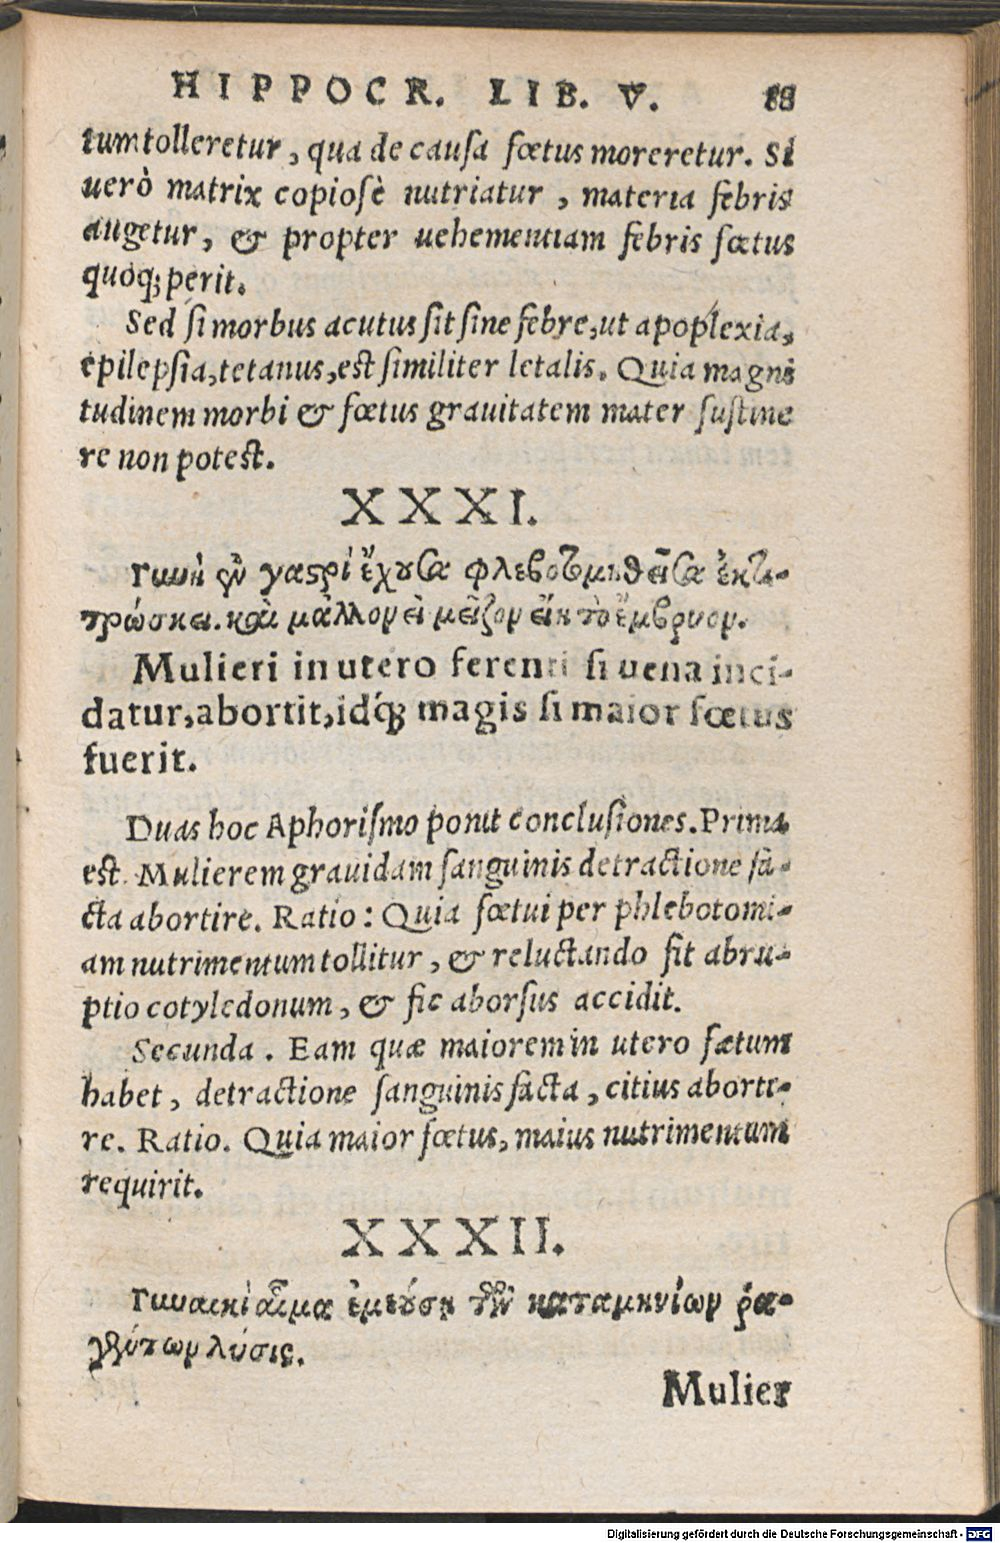 HIPPOCR. LIB. V. 88
tum tolleretur, qua de causa fœtus moreretur. Si
uerò matrix copiosè nutriatur, materia febris
augetur, & propter uehementiam febris fœtus
quoq; perit.
Sed si morbus acutus sit sine febre, ut apoplexia,
epilepsia, tetanus, est similiter letalis. Quia magni
tudinem morbi & fœtus grauitatem mater sustine
re non potest.
XXXI.
Γυνὴ ἐν γαστρὶ ἔχουσα φλεβοτομηθεῖσα ἐκτι-
τρώσκει. καὶ μᾶλλον εἰ μεῖζον εἴη τὸ ἔμβρυον.
Mulieri in utero ferenti si uena inci-
datur, abortit, idq́; magis si maior fœtus
fuerit.
Duas hoc Aphorismo ponit conclusiones. Prima
est. Mulierem grauidam sanguinis detractione fa-
cta abortire. Ratio: Quia fœtui per phlebotomi-
am nutrimentum tollitur, & reluctando fit abru-
ptio cotyledonum, & sic aborsus accidit.
Secunda. Eam quæ maiorem in utero fætum
habet, detractione sanguinis facta, citius aborti-
re. Ratio. Quia maior fœtus, maius nutrimentum
requirit.
XXXII.
Γυναικὶ αἷμα ἐμεούσῃ τῶν καταμηνίων ῥα-
γέντων λύσις.
Mulier
Digitalisierung gefördert durch die Deutsche Forschungsgemeinschaft - DFG